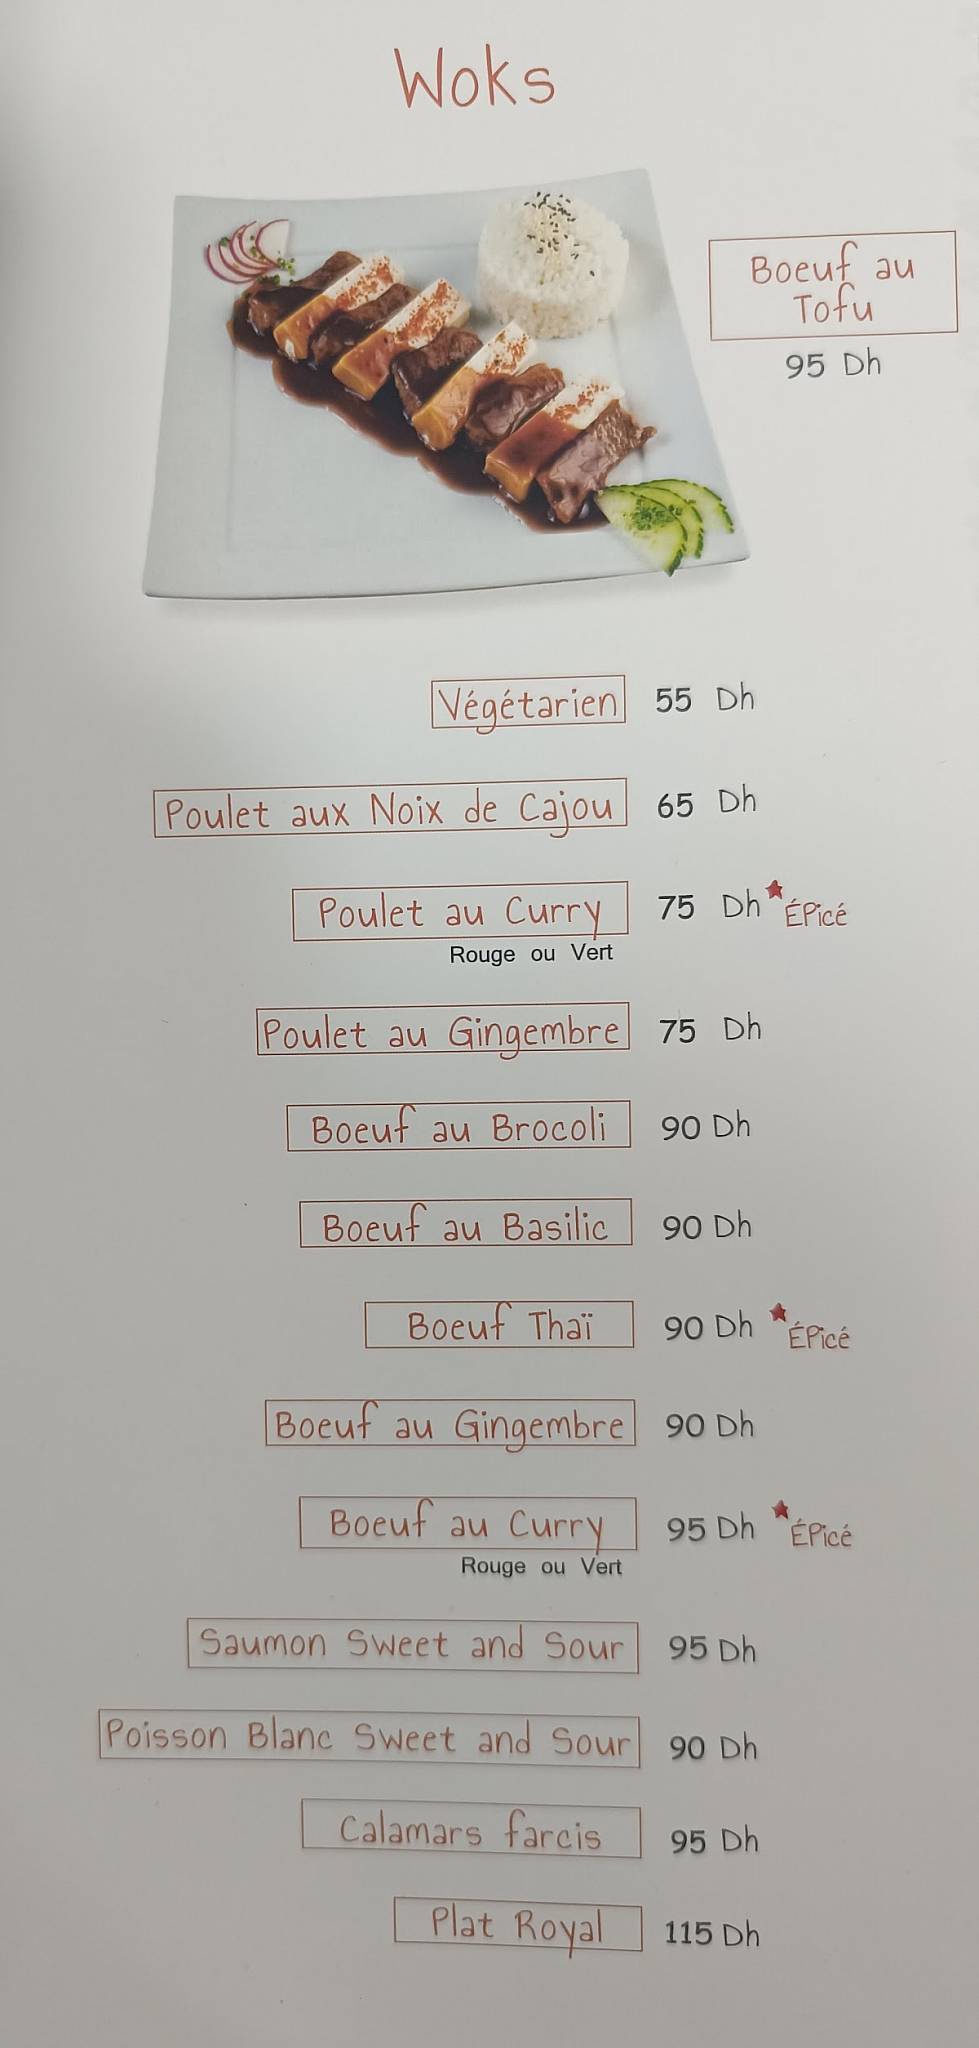 Woks
Boeuf au
Tofu
95 Dh
Végétarien 55 Dh
Poulet aux Noix de Cajou 65 Dh
Poulet au Curry 75 Dh Épicé
Rouge ou Vert
Poulet au Gingembre 75 Dh
Boeuf au Brocoli 90 Dh
Boeuf au Basilic 90 Dh
Boeuf Thaï 90 Dh Épicé
Boeuf au Gingembre 90 Dh
Boeuf au Curry 95 Dh Épicé
Rouge ou Vert
Saumon Sweet and Sour 95 Dh
Poisson Blanc Sweet and Sour 90 Dh
Calamars farcis 95 Dh
Plat Royal 115 Dh